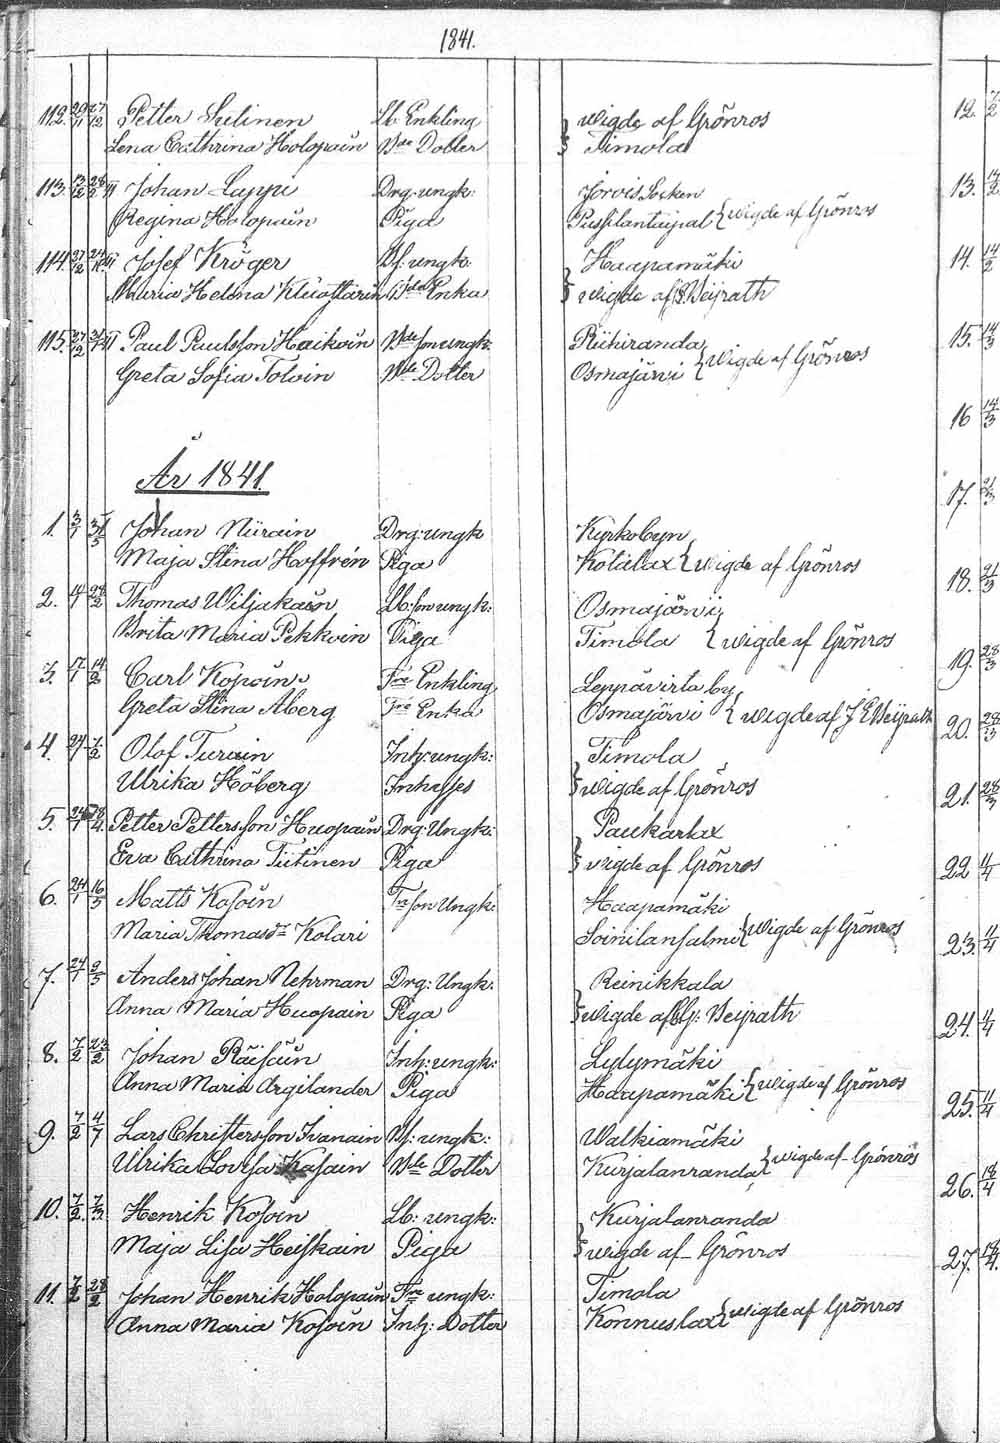 1841.
112. 29/11 27/12 Petter Sutinen Lb. Enkling wigde af Grönros
Lena Cathrina Holopain Bde Dotter Timola
113. 13/12 28/2 Johan Lappi Drg: ungk: Jorois Socken
Regina Holopain Piga wigde af Grönros
114. 27/12 Josef Kröger Bf: ungk: Haapamäki
Maria Helena Enka wigde af Weijrath
115. 27/12 Paul Paulsson Haikoin Bde son ungk: Riihiranda
Greta Sofia Tolvin Bde Dotter Osmajärvi wigde af Grönros
År 1841.
1. 3/1 Johan Niirain Drg: ungk Kyrkobyn
Maja Stina Hoffrén Piga Kotalax wigde af Grönros
2. Thomas Wiljakain Lb: son ungk: Osmajärvi
Brita Maria Pekkoin Piga Timola wigde af Grönros
3. 17/1 14/2 Carl Kosoin Fre Enkling Leppävirta by
Greta Stina Åberg Fre Enka Osmajärvi wigde af J E Weijrath
4. 7/2 Olof Turoin Inh: ungk: Timola
Ulrika Höberg Inhyses wigde af Grönros
5. 24/1 Petter Pettersson Huopain Drg: Ungk: Paukarlax
Eva Cathrina Tiitinen Piga wigde af Grönros
6. 24/1 16/5 Matts Kosoin Tr son Ungk: Haapamäki
Maria Thomasdr Kolari Soinilansalmi wigde af Grönros
7. 24/1 9/5 Anders Johan Nehrman Drg: Ungk: Reinikkala
Anna Maria Huopain Piga wigde af Weijrath
8. 7/2 23/2 Johan Räisäin Inh: ungk: Lylymäki
Anna Maria Argilander Piga Haapamäki wigde af Grönros
9. 7/2 4/7 Lars Christersson Ivanain Bf: ungk: Walkiamäki
Ulrika Lovisa Kasain Bde Dotter Kurjalanranda wigde af Grönros
10. 7/2 7/3 Henrik Kosoin Lb: ungk: Kurjalanranda
Maja Lisa Heiskain Piga wigde af Grönros
11. 7/2 28/2 Johan Henrik Holopain Fre ungk: Timola
Anna Maria Kosoin Inh: Dotter Konnuslax wigde af Grönros
12. 7/2
13. 14/2
14. 14/2
15. 14/3
16 14/3
17. 21/3
18. 21/3
19. 28/3
20. 28/3
21. 28/3
22 11/4
23. 11/4
24. 11/4
25. 11/4
26. 18/4
27. 18/4